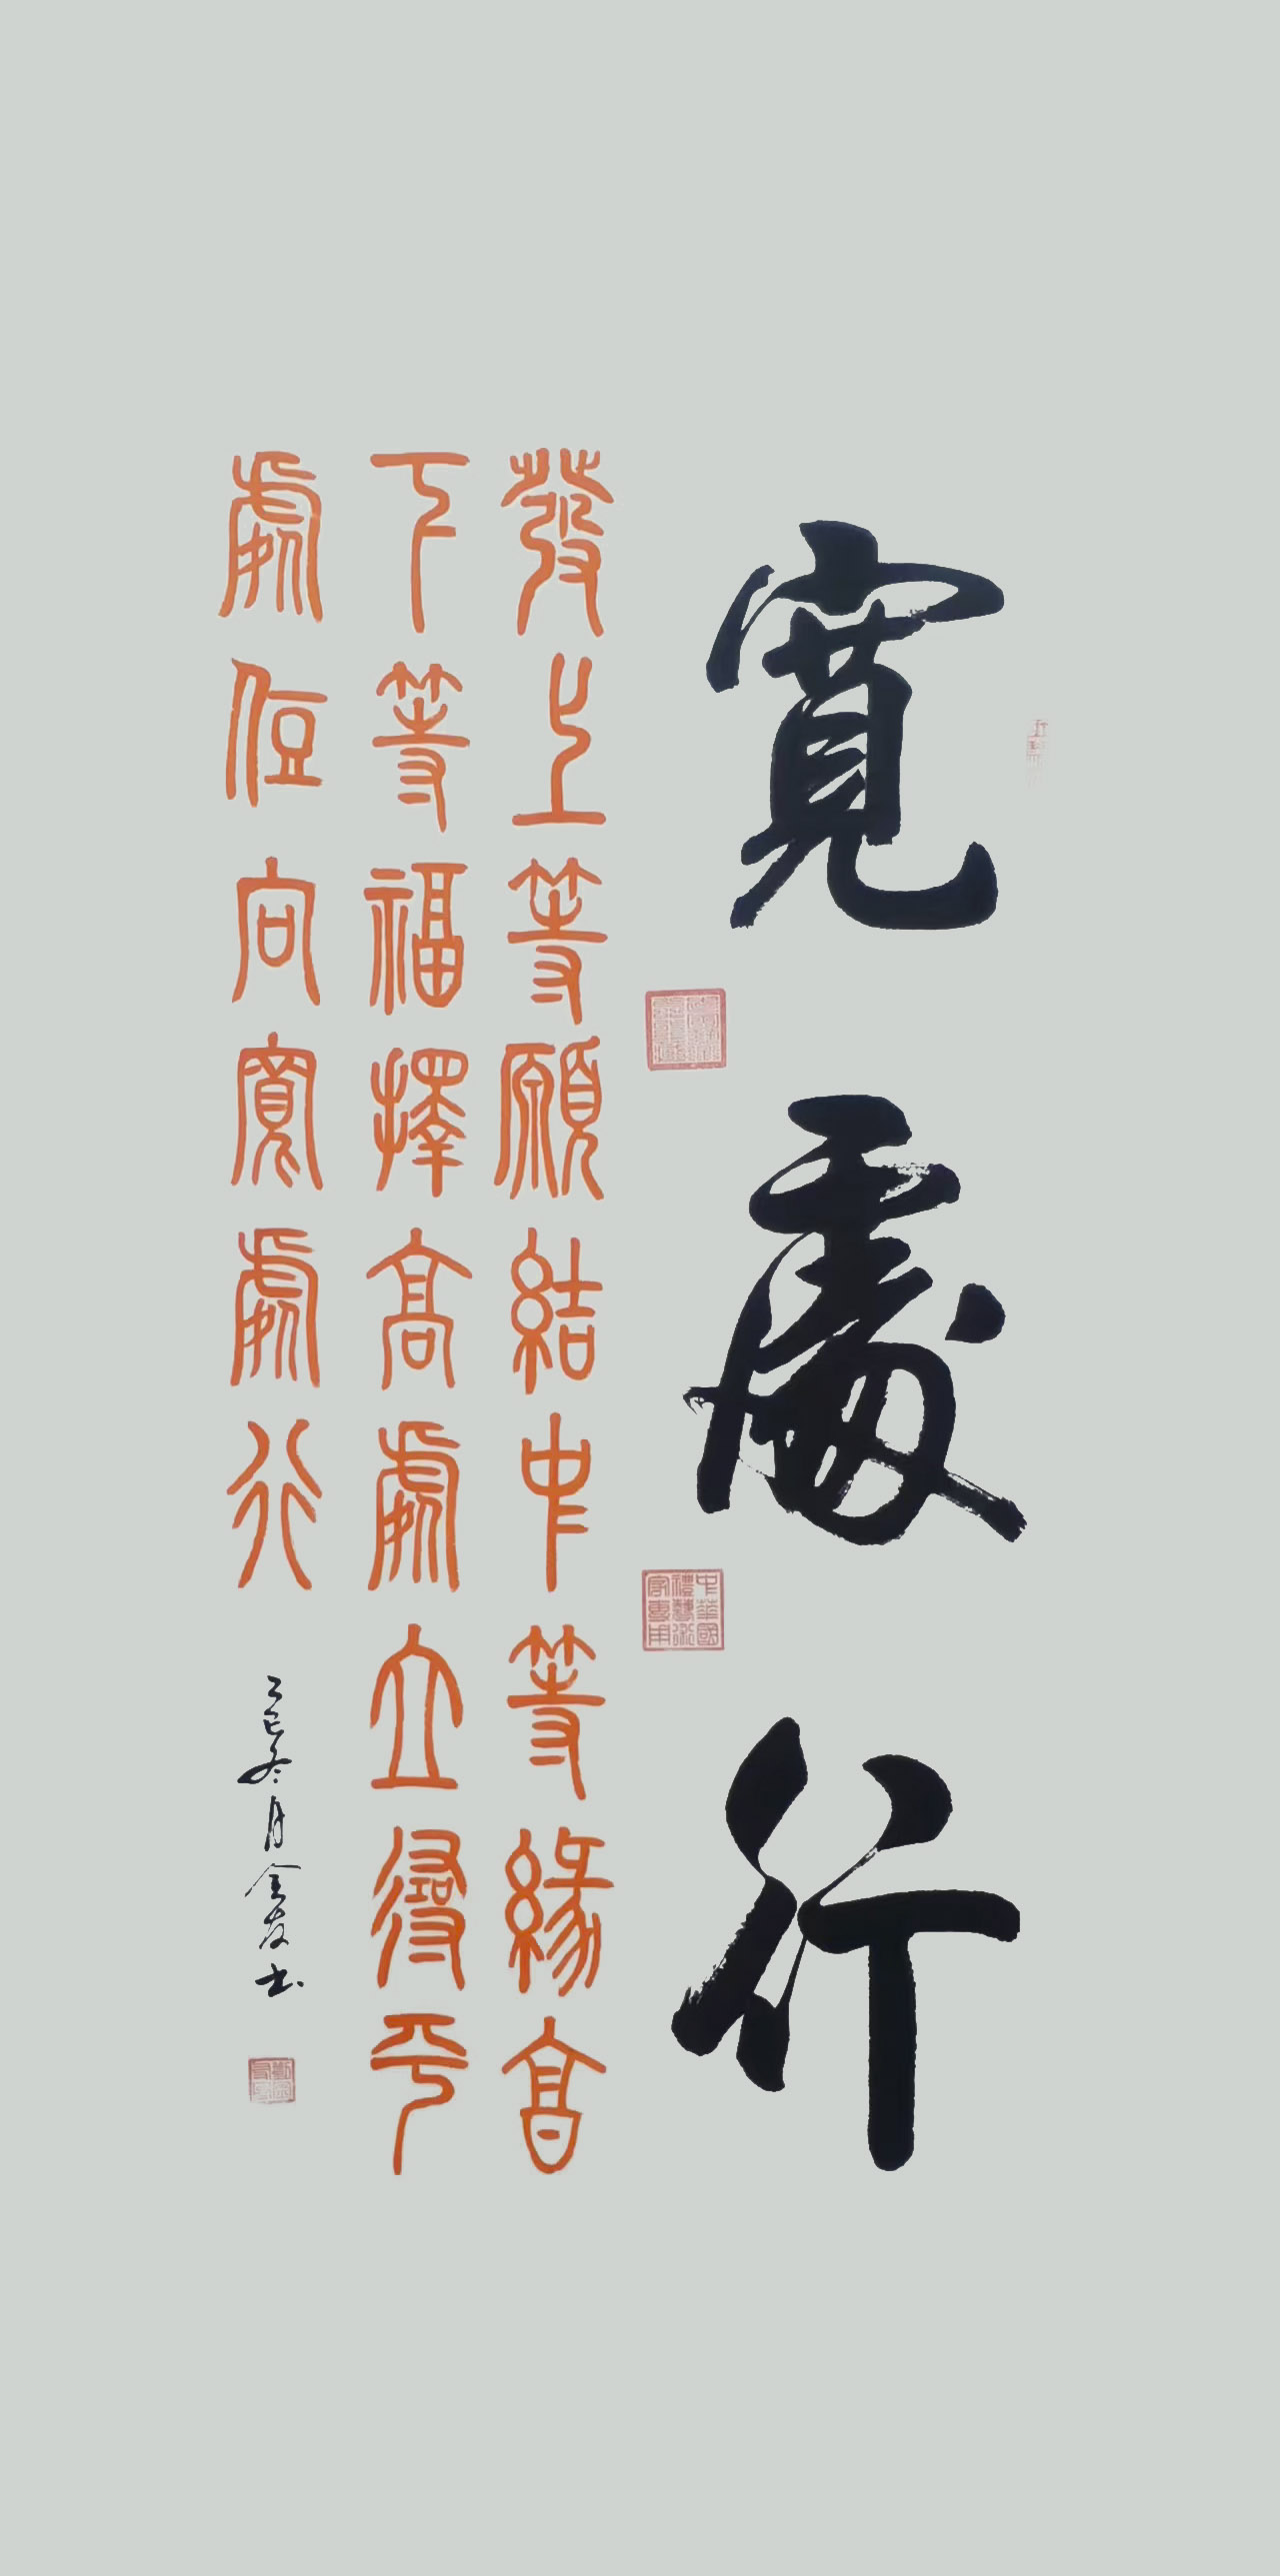 寬處行
中華國禮藝術家專用
發上等願結中等緣享
下等福擇高處立尋平
處住向寬處行
乙巳冬月金友书